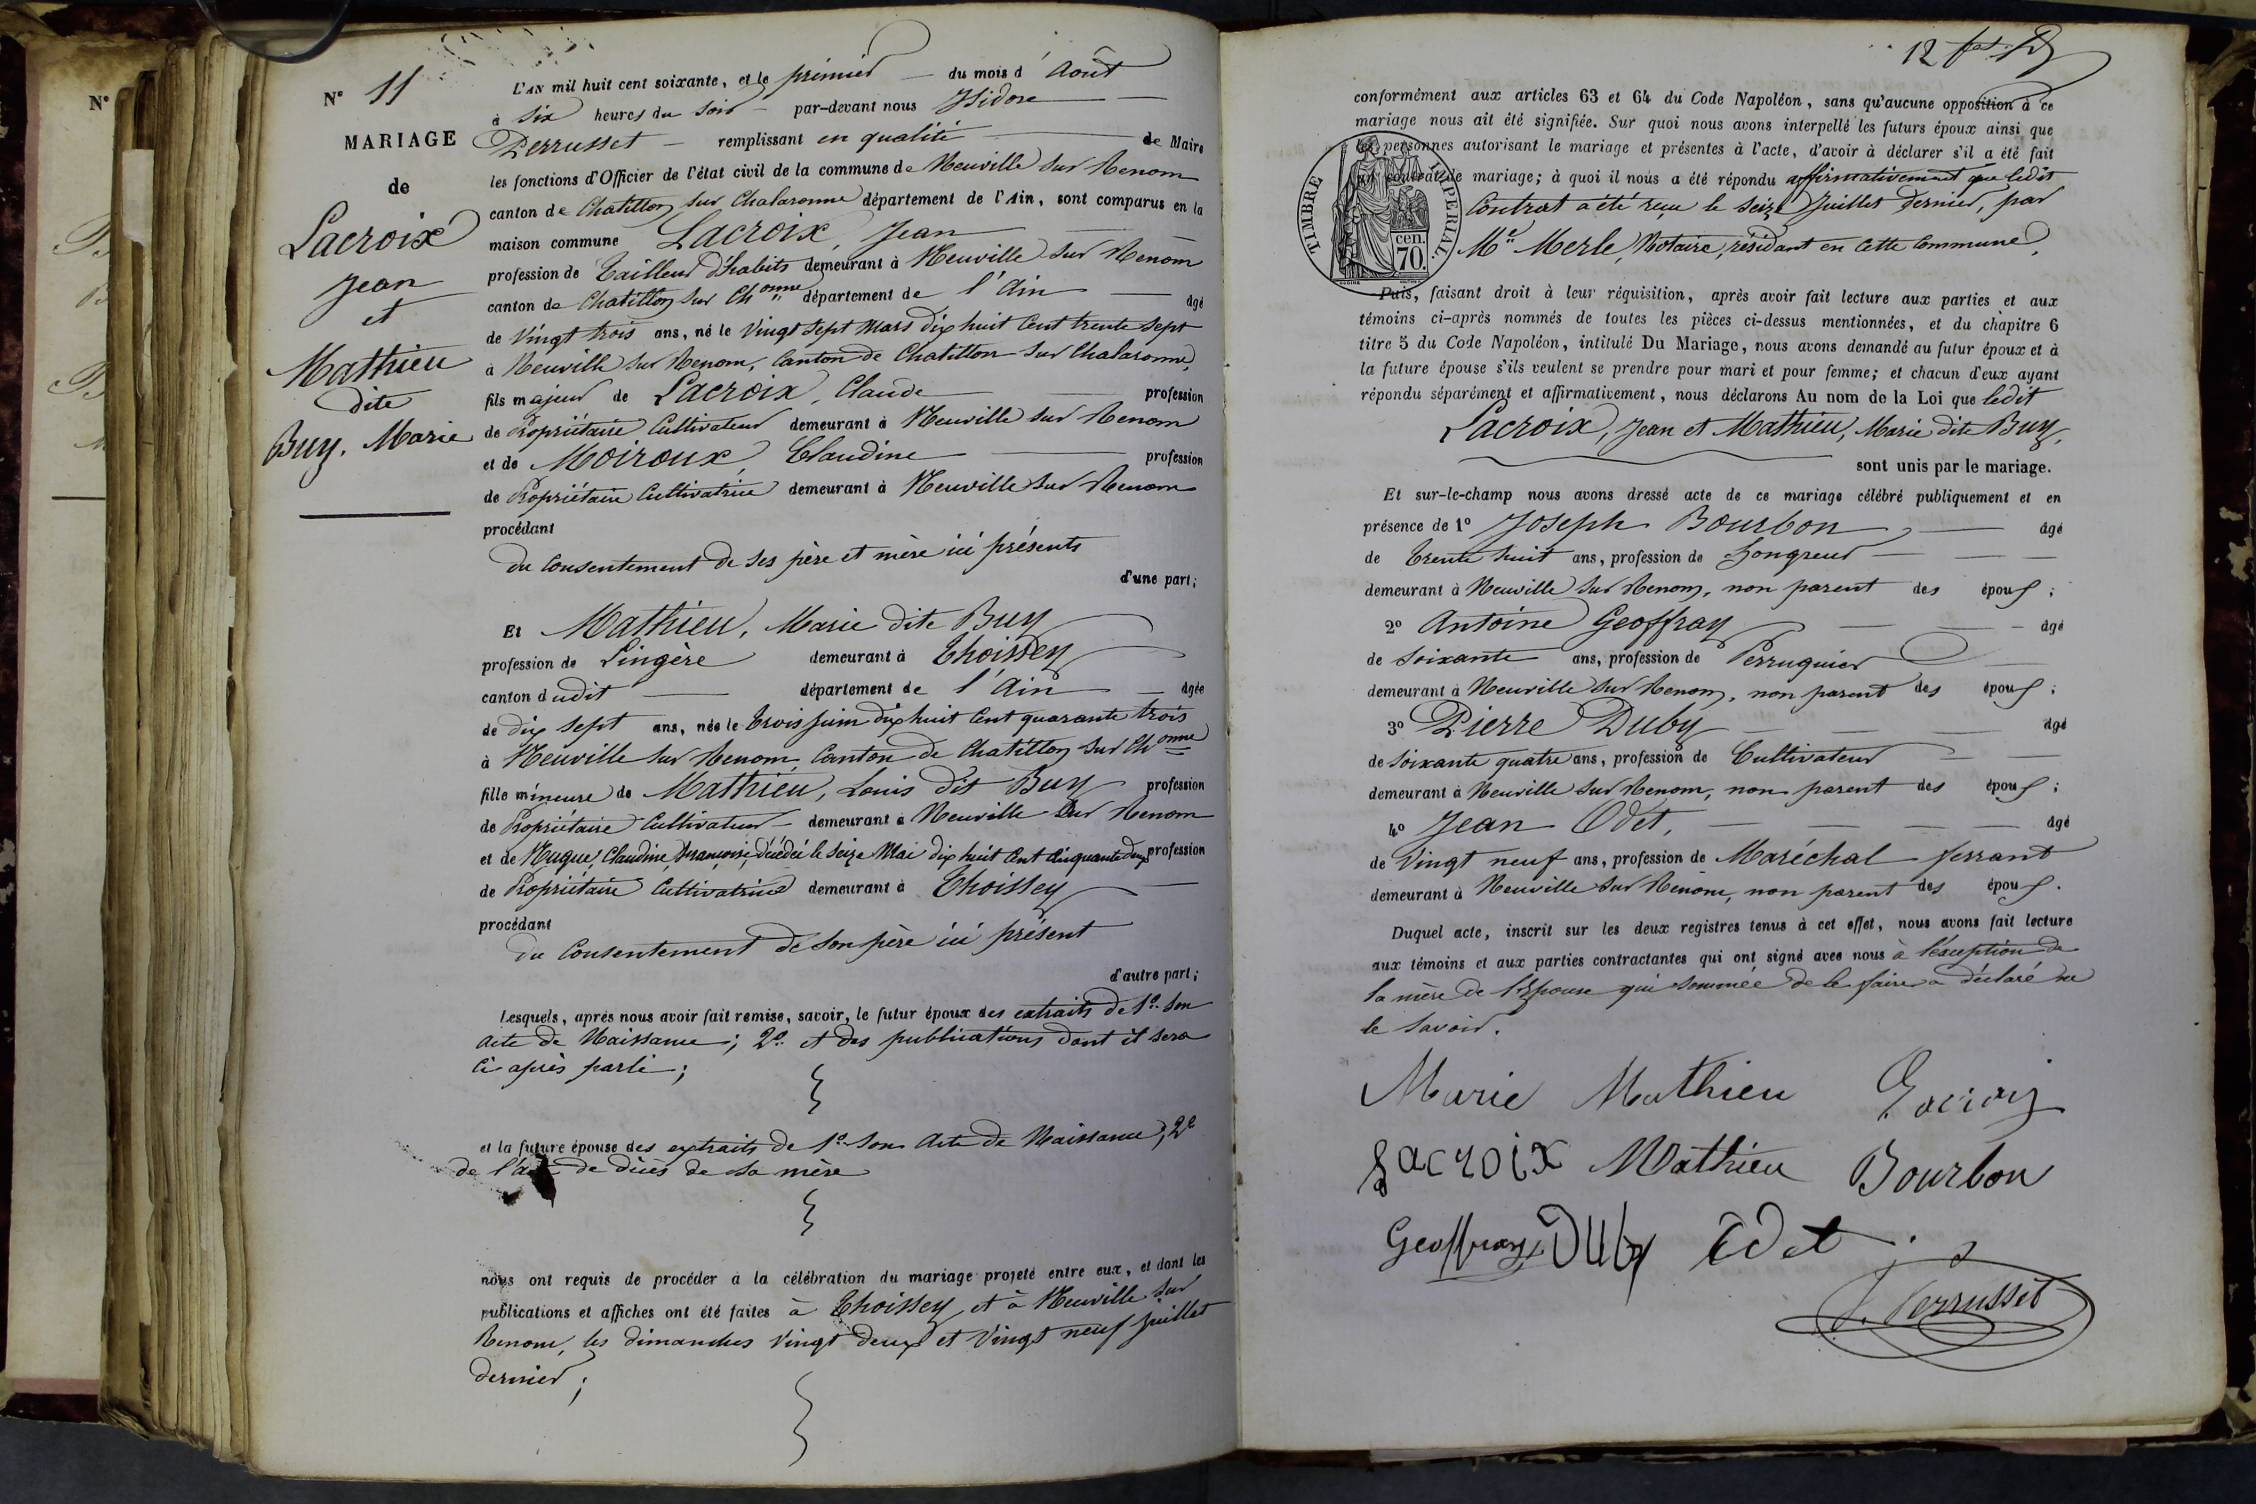 Nº
Nº 11
MARIAGE
de
Lacroix
Jean
et
Mathieu
dite
Buy, Marie
L'AN mil huit cent soixante, et le prémier — du mois d'Août
à six heures du soir — par-devant nous Isidore —
Perrusset — remplissant en qualité — de Maire
les fonctions d'Officier de l'état civil de la commune de Neuville sur Renom
canton de Chatillon sur Chalaronne département de l'Ain, sont comparus en la
maison commune Lacroix, Jean —
profession de Tailleur d'habits demeurant à Neuville sur Renom
canton de Chatillon sur Chonne département de l'Ain — âgé
de Vingt trois ans, né le Vingt sept Mars dix huit Cent trente sept
à Neuville sur Renom, Canton de Chatillon sur Chalaronne,
fils majeur de Lacroix, Claude — profession
de Propriétaire Cultivateur demeurant à Neuville sur Renom
et de Moiroux, Claudine — profession
de Propriétaire Cultivatrice demeurant à Neuville sur Renom
procédant
du Consentement de ses père et mère ici présents
d'une part;
Et Mathieu, Marie dite Buy
profession de Lingère demeurant à Thoissey
canton dudit — département de l'Ain — âgée
de dix sept ans, née le trois Juin dix huit Cent quarante trois
à Neuville sur Renom, Canton de Chatillon sur Chonne
fille mineure de Mathieu, Louis dit Buy profession
de Propriétaire Cultivateur — demeurant à Neuville sur Renom
et de Hugue, Claudine, françoise, décédée le seize Mai dix huit Cent cinquante deux profession
de Propriétaire Cultivatrice demeurant à Thoissey —
procédant
du Consentement de son père ici présent
d'autre part;
Lesquels, après nous avoir fait remise, savoir, le futur époux des extraits de 1º. son
acte de Naissance; 2º. et des publications dont il sera
Ci après parlé;
et la future épouse des extraits de 1º. son Acte de Naissance, 2º
de l'acte de décès de sa mère
nous ont requis de procéder à la célébration du mariage projeté entre eux, et dont les
publications et affiches ont été faites à Thoissey et à Neuville sur
Renom, les dimanches Vingt deux et Vingt neuf Juillet
dernier;
12
conformément aux articles 63 et 64 du Code Napoléon, sans qu'aucune opposition à ce
mariage nous ait été signifiée. Sur quoi nous avons interpellé les futurs époux ainsi que
les personnes autorisant le mariage et présentes à l'acte, d'avoir à déclarer s'il a été fait
un contrat de mariage; à quoi il nous a été répondu affirmativement que ledit
TIMBRE IMPERIAL
cen.
70.
Contrat a été reçu le seize Juillet dernier, par
Me. Merle, Notaire, résidant en cette Commune,
Puis, faisant droit à leur réquisition, après avoir fait lecture aux parties et aux
témoins ci-après nommés de toutes les pièces ci-dessus mentionnées, et du chapitre 6
titre 5 du Code Napoléon, intitulé Du Mariage, nous avons demandé au futur époux et à
la future épouse s'ils veulent se prendre pour mari et pour femme; et chacun d'eux ayant
répondu séparément et affirmativement, nous déclarons Au nom de la Loi que ledit
Lacroix, Jean et Mathieu, Marie dite Buy,
sont unis par le mariage.
Et sur-le-champ nous avons dressé acte de ce mariage célébré publiquement et en
présence de 1º Joseph Bourbon, — âgé
de trente huit ans, profession de hongreur —
demeurant à Neuville sur Renom, non parent des époux;
2º Antoine Geoffray — âgé
de soixante ans, profession de Perruquier —
demeurant à Neuville sur Renom, non parent des époux;
3º Pierre Duby — âgé
de soixante quatre ans, profession de Cultivateur —
demeurant à Neuville sur Renom, non parent des époux;
4º Jean Odet, — âgé
de Vingt neuf ans, profession de Maréchal ferrant
demeurant à Neuville sur Renom, non parent des époux.
Duquel acte, inscrit sur les deux registres tenus à cet effet, nous avons fait lecture
aux témoins et aux parties contractantes qui ont signé avec nous à l'éxception de
la mère de l'Epoux qui sommée de le faire a déclaré ne
le savoir.
Marie Mathieu Lacroix
Lacroix Mathieu Bourbon
Geoffray Duby Odet
J. Perrusset